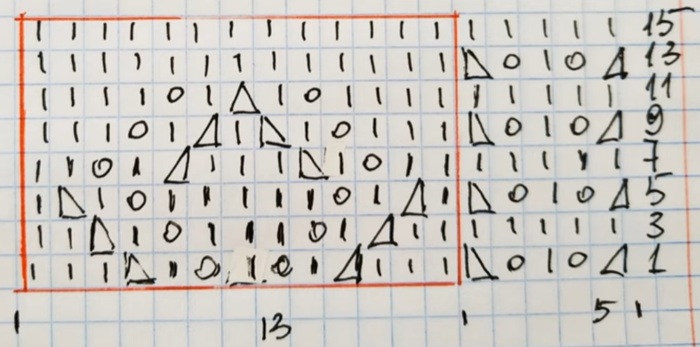 | | | | | | | | | | | | | | | | | | 15
| | | | | | | | | | | | | ◺ O | O ◿ 13
| | | | O | △ | O | | | | | | | | | 11
| | | O | ◿ | ◺ | O | | | ◺ O | O ◿ 9
| | O | ◿ | | | ◺ | O | | | | | | | 7
| ◺ | O | | | | | O | ◿ | ◺ O | O ◿ 5
| | ◺ | O | | | O | ◿ | | | | | | | 3
| | | ◺ | O | O | ◿ | | | ◺ O | O ◿ 1
| 13 | 5 |